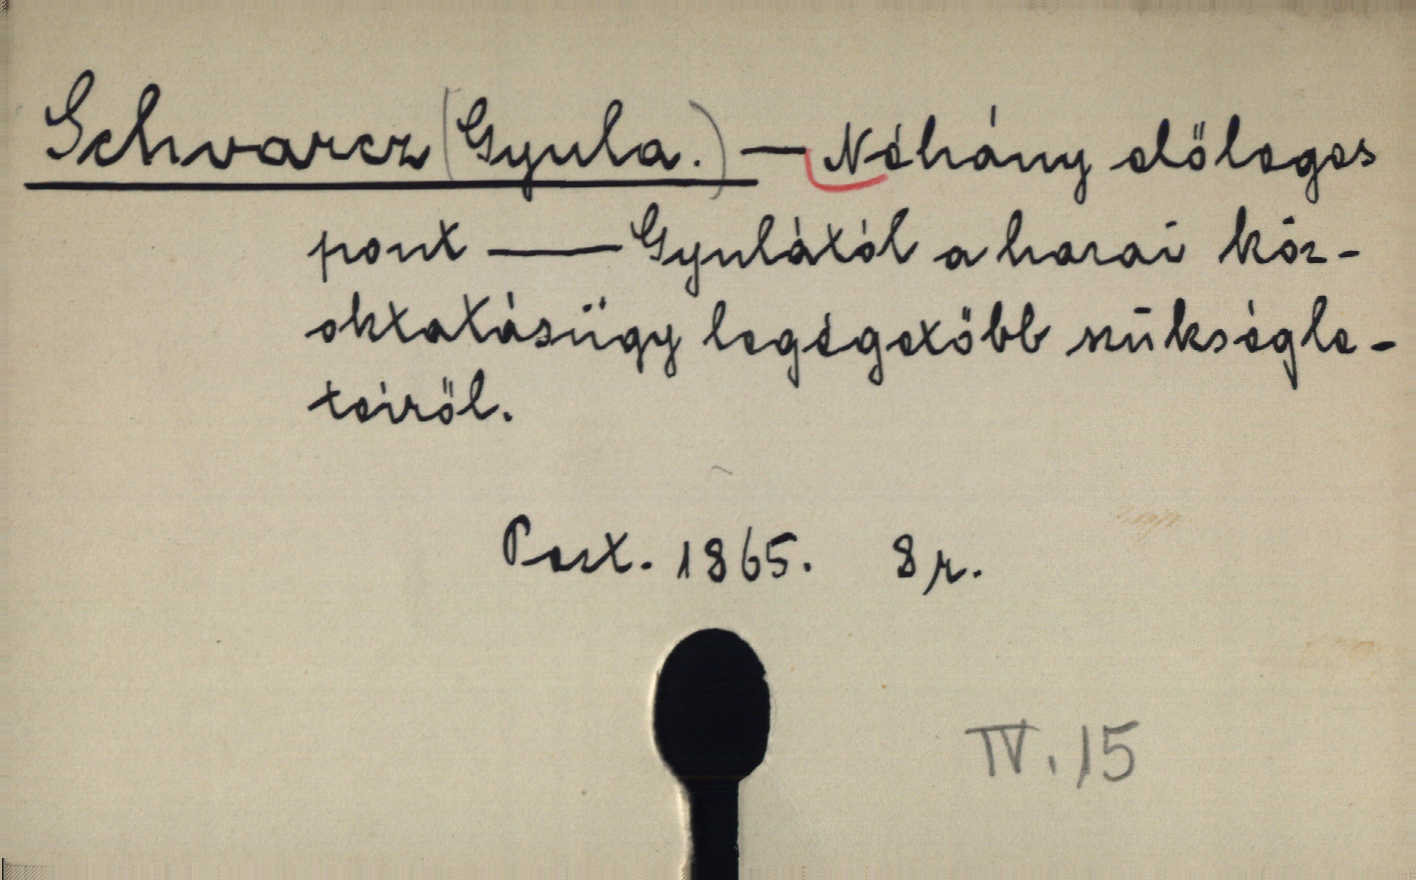 Schvarcz (Gyula.) — Néhány előleges
pont —— Gyulától a hazai köz-
oktatásügy legégetőbb szükségle-
teiről.
Pest. 1865. 8 r.
IV. 15